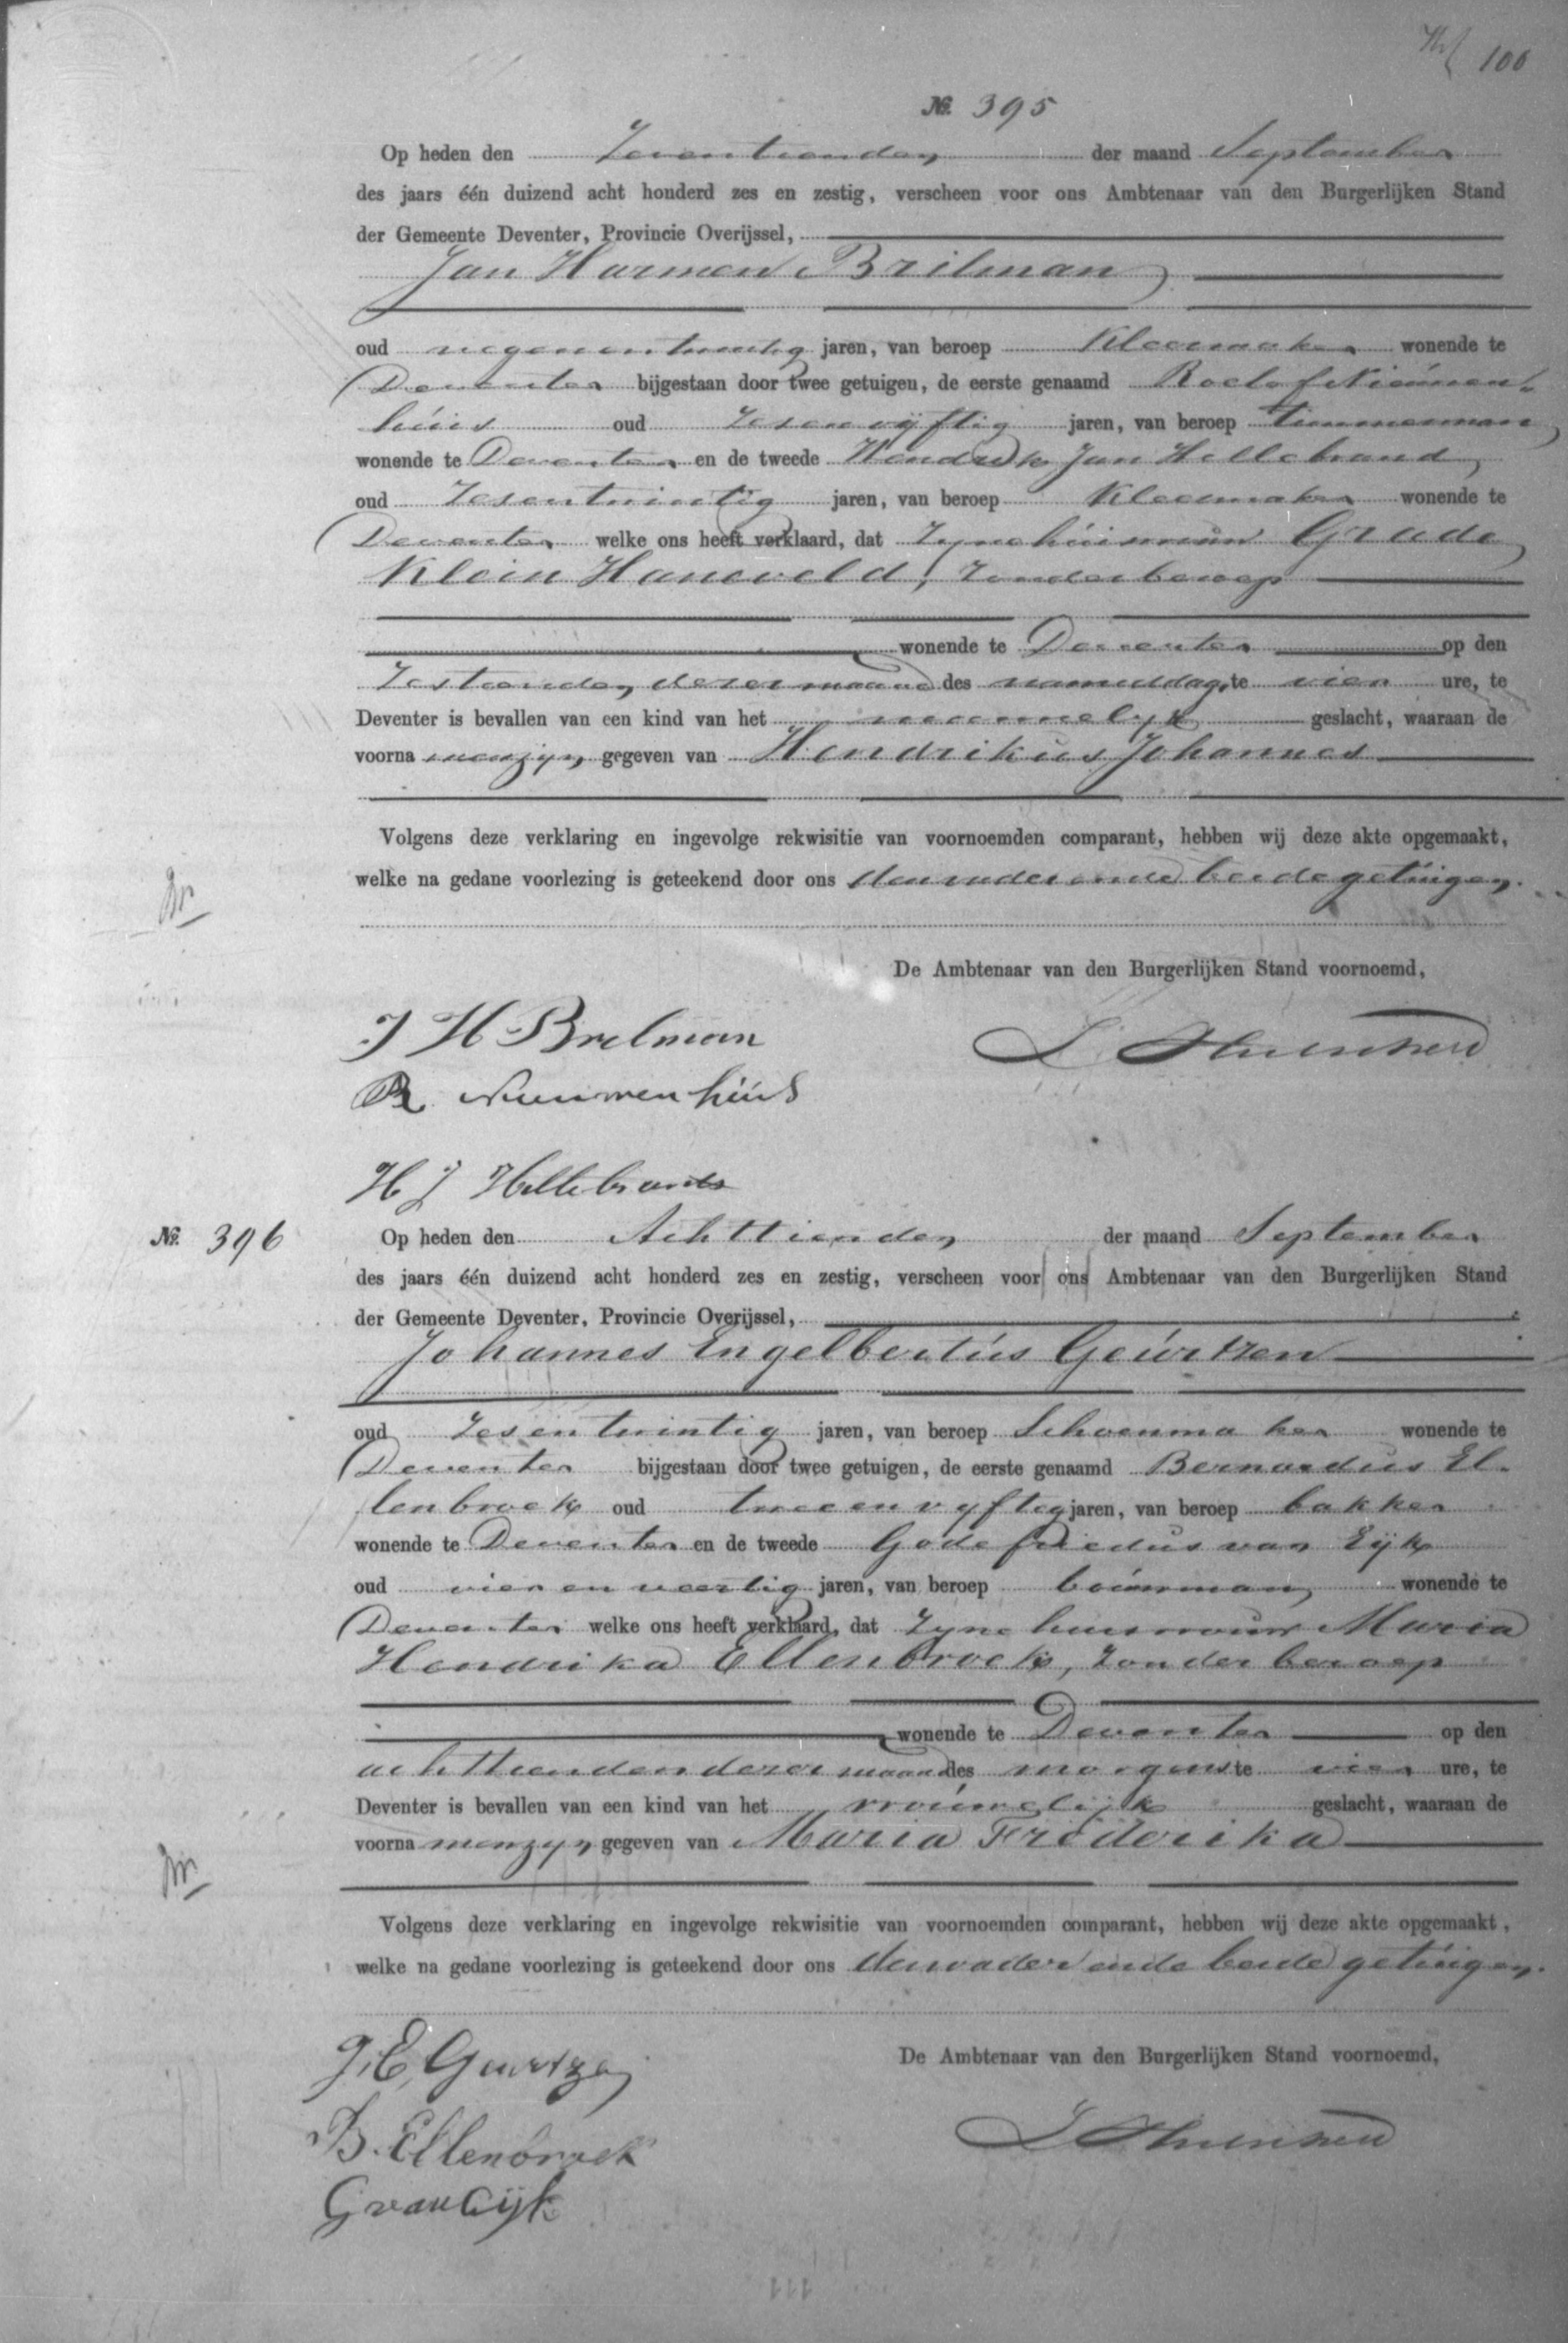 100
№. 395
Op heden den Zeventienden der maand September
des jaars één duizend acht honderd zes en zestig, verscheen voor ons Ambtenaar van den Burgerlijken Stand
der Gemeente Deventer, Provincie Overijssel,
Jan Harmen Brilman
oud negenentwintig jaren, van beroep Kleermaker wonende te
Deventer bijgestaan door twee getuigen, de eerste genaamd Roelof Nieuwen-
huis oud zesenvijftig jaren, van beroep timmerman
wonende te Deventer en de tweede Hendrik Jan Hellebrand
oud Zesentwintig jaren, van beroep Kleermaker wonende te
Deventer welke ons heeft verklaard, dat Zyne huisvrouw Grada
Klein Haneveld, Zonder beroep
wonende te Deventer op den
Zestienden dezer maand des namiddags te vier ure, te
Deventer is bevallen van een kind van het mannelyk geslacht, waaraan de
voorna men zyn gegeven van Hendrikus Johannes
Volgens deze verklaring en ingevolge rekwisitie van voornoemden comparant, hebben wij deze akte opgemaakt,
welke na gedane voorlezing is geteekend door ons den vader en de beide getuigen.
De Ambtenaar van den Burgerlijken Stand voornoemd,
J H Brelman
R Nieuwenhuis
H J Hellebrands
№. 396
Op heden den Achttienden der maand September
des jaars één duizend acht honderd zes en zestig, verscheen voor ons Ambtenaar van den Burgerlijken Stand
der Gemeente Deventer, Provincie Overijssel,
Johannes Engelbertus Geurtzen
oud Zesentwintig jaren, van beroep Schoenmaker wonende te
Deventer bijgestaan door twee getuigen, de eerste genaamd Bernardus El-
lenbroek oud tweeenvyftig jaren, van beroep bakker
wonende te Deventer en de tweede Godefriedus van Eijk
oud vier en veertig jaren, van beroep bouwman wonende te
Deventer welke ons heeft verklaard, dat Zyne huisvrouw Maria
Hendrika Ellenbroek, Zonder beroep
wonende te Deventer op den
achttienden dezer maand des morgens te vier ure, te
Deventer is bevallen van een kind van het vrouwelijk geslacht, waaraan de
voorna men zyn gegeven van Maria Frederika
Volgens deze verklaring en ingevolge rekwisitie van voornoemden comparant, hebben wij deze akte opgemaakt,
welke na gedane voorlezing is geteekend door ons den vader en de beide getuigen.
De Ambtenaar van den Burgerlijken Stand voornoemd,
J. E. Geurtzen
B. Ellenbroek
G van Eijk